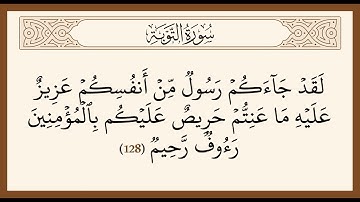 سُورَةُ التَّوْبَةِ
لَقَدۡ جَآءَكُمۡ رَسُولٞ مِّنۡ أَنفُسِكُمۡ عَزِيزٌ
عَلَيۡهِ مَا عَنِتُّمۡ حَرِيصٌ عَلَيۡكُم بِٱلۡمُؤۡمِنِينَ
رَءُوفٞ رَّحِيمٞ (128)